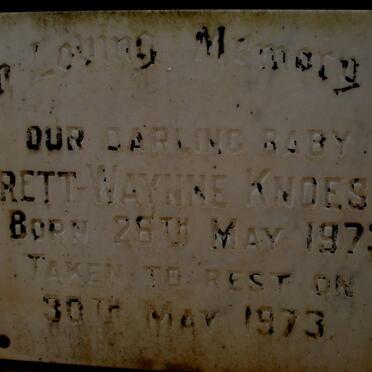 n Loving Memory
OUR DARLING BABY
RETT-WAYNNE KNOES
BORN 26TH MAY 1973
TAKEN TO REST ON
30TH MAY 1973